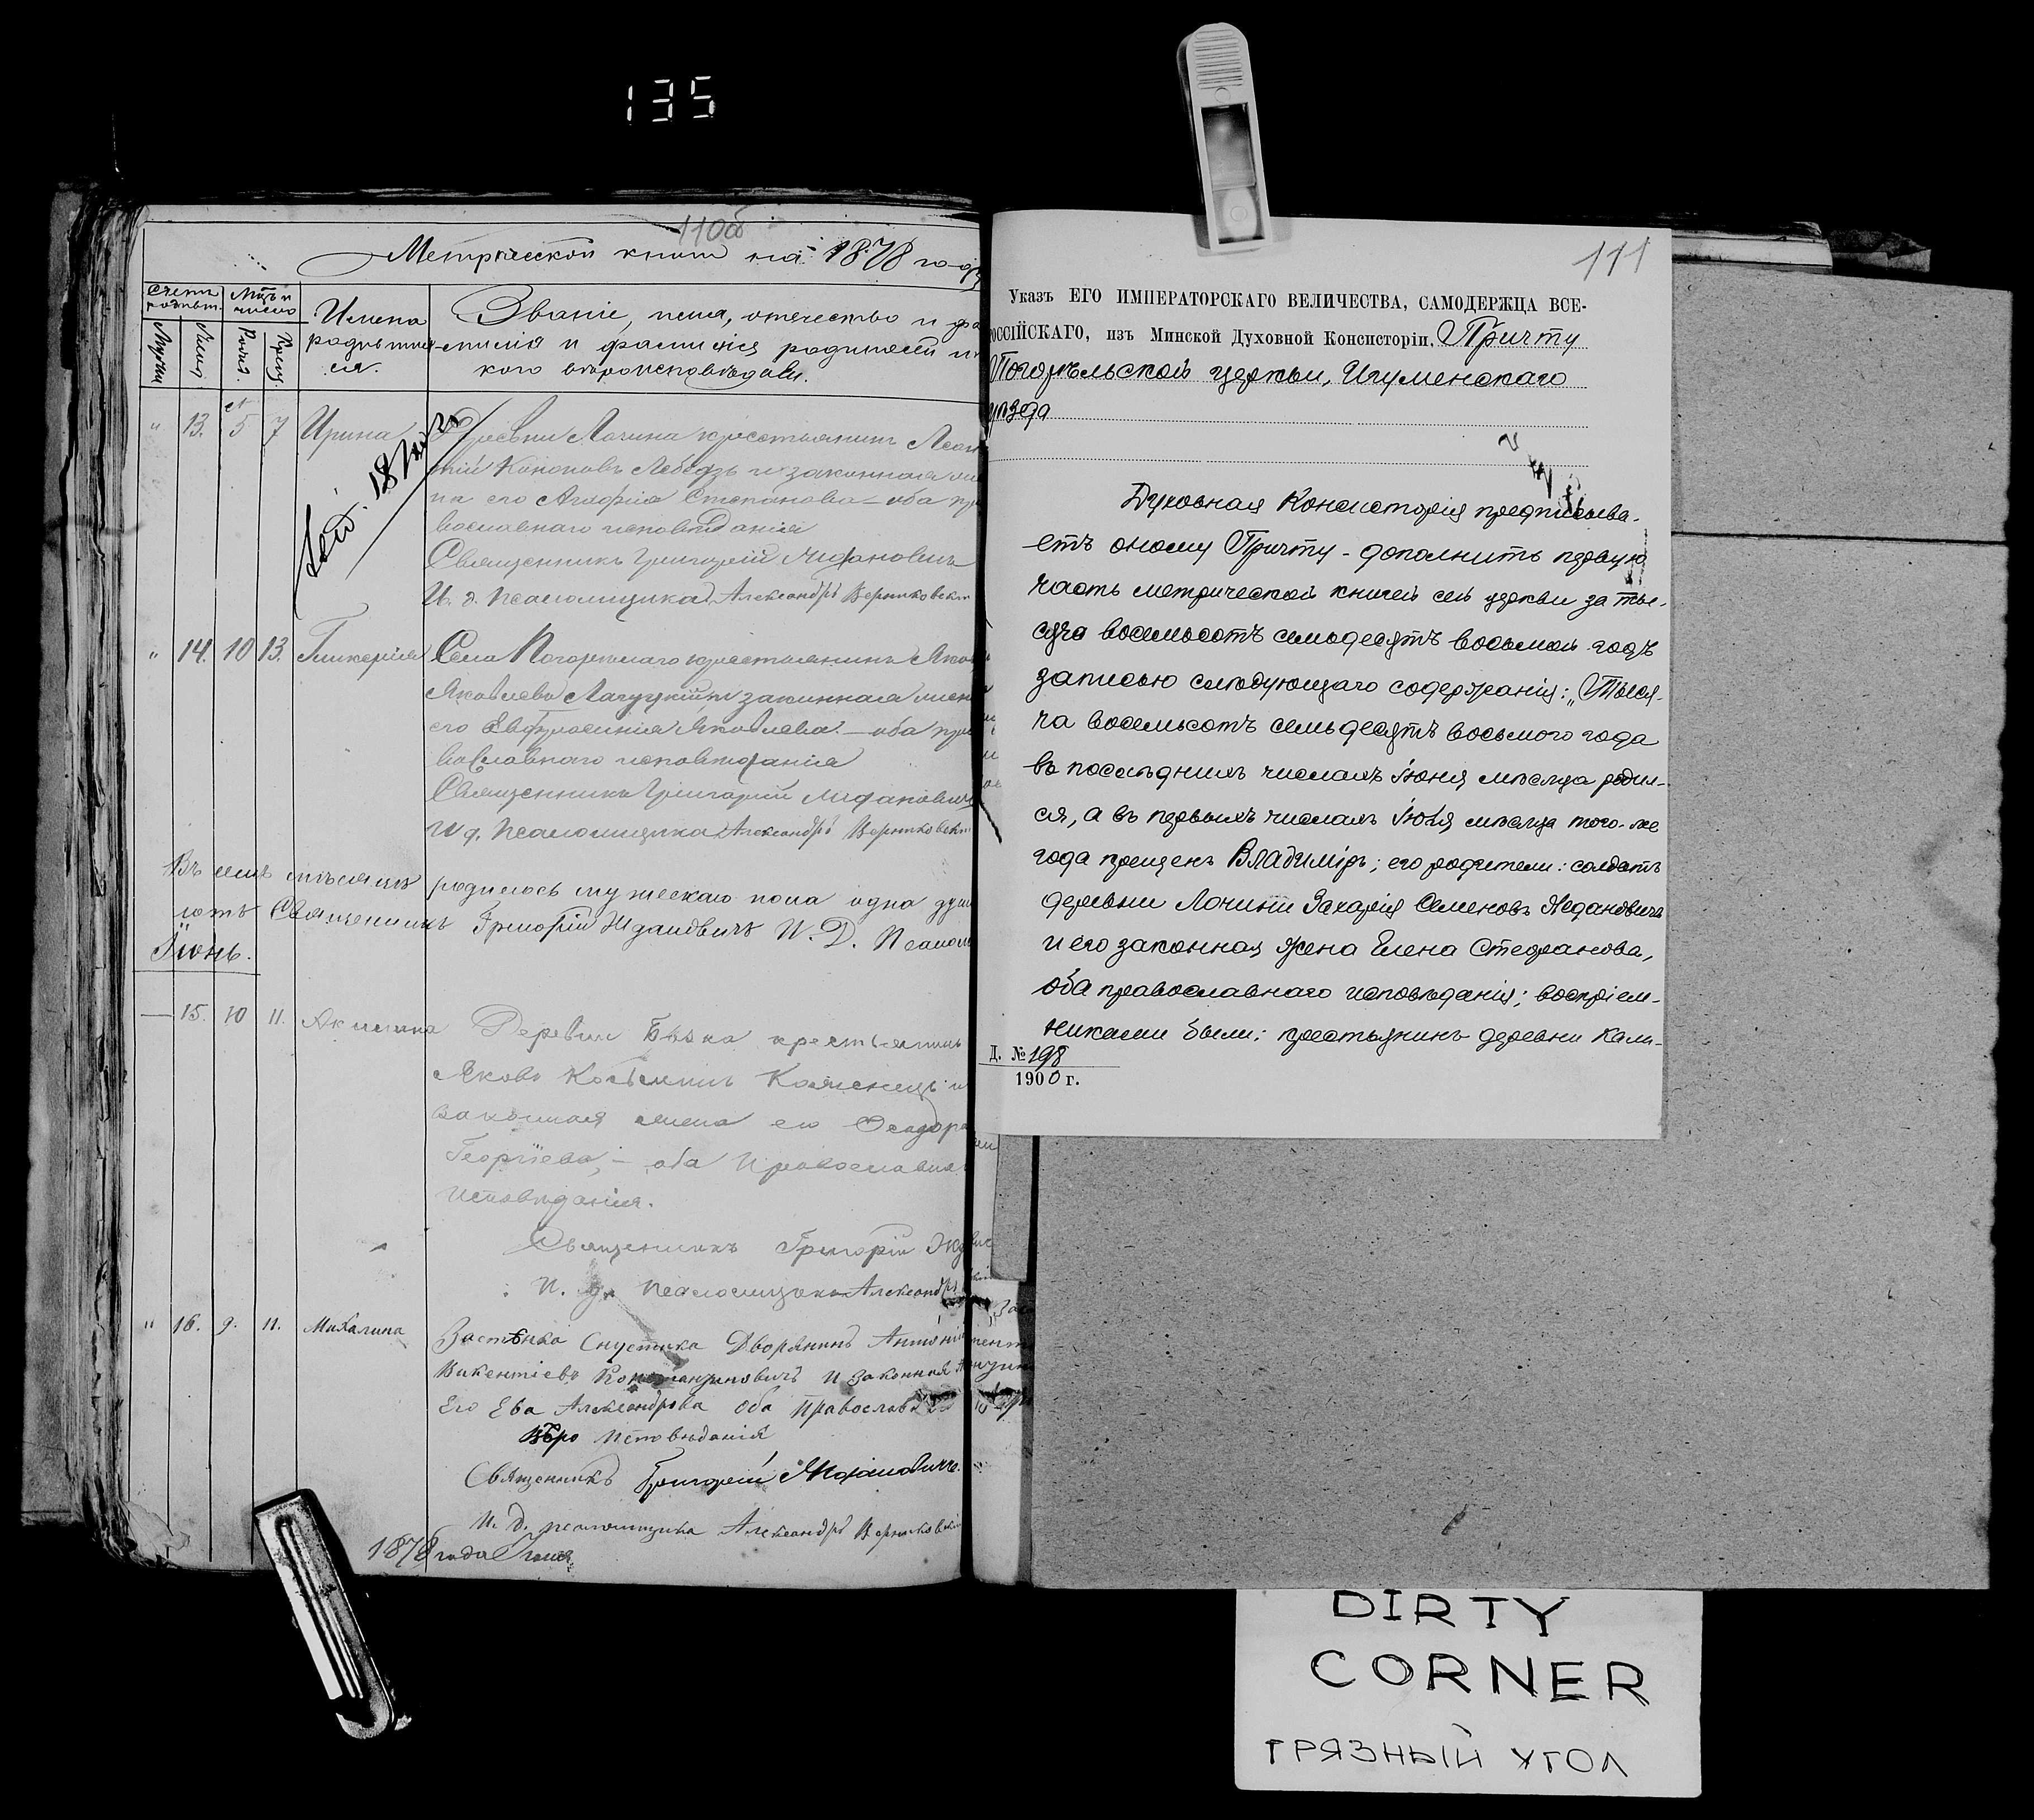 135
110об
Метрической книги на 1878 годъ
Счетъ родивш.
Мѣс. и число
Мужск.
Женск.
Рожд.
Крещ.
Имена
родивших-
ся.
Званіе, имя, отечество и фа-
милія и фамилія родителей и
кого вѣроисповѣданія.
" 13. 5 7 Ирина
Деревни Лочина крестьянинъ Леон
тій Кононовъ Лебедзь и законная же
на его Агафія Степанова – оба пра
вославнаго исповѣданія
Священникъ Григорій Ждановичъ
И. д. псаломщика Александръ
" 14. 10 13. Гликерія
Села Погорѣлаго крестьянинъ Яков
Яковлевъ и законная жена
его Евфросинія Яковлева – оба пра
вославнаго исповѣданія
Священникъ Григорій Ждановичъ
И д. псаломщика Александръ
Въ семъ мѣсяцѣ родилось мужескаго пола одна душ
Священникъ Григорій Ждановичъ И. Д. Псалом
Іюнь.
— 15. 10 11. Акилина
Деревни крестьянинъ
Яковъ и
законная жена его Ѳеодора
Георгіева, – оба Православнаго
исповѣданія.
Священникъ Григорій Жд
И. д. псаломщика Александръ
" 16. 9. 11. Михалина
Застѣнка Дворянинъ Антоній
Викентіевъ и законная
Его Ева Александрова оба православна
вѣро исповѣданія
Священникъ Григорій Ждановичъ.
И. д. псаломщика Александръ
1878 года Іюня
111
Указъ ЕГО ИМПЕРАТОРСКАГО ВЕЛИЧЕСТВА, САМОДЕРЖЦА ВСЕ-
РОССІЙСКАГО, изъ Минской Духовной Консисторіи, Причту
Погорѣльской церкви, Игуменскаго
уѣзда
Духовная Консисторія предписыва-
етъ оному Причту – дополнить первую
часть метрической книги сей церкви за ты-
сяча восемьсотъ семьдесятъ восьмой годъ
записью слѣдующаго содержанія: „Тыся-
ча восемьсотъ семьдесятъ восьмого года
въ послѣднихъ числахъ Іюня мѣсяца родил-
ся, а въ первыхъ числахъ Іюля мѣсяца того-же
года крещенъ Владиміръ; его родители: солдатъ
деревни Лочини Захарія Семеновъ Ждановичъ
и его законная жена Елена Стефанова,
оба православнаго исповѣданія; воспріем-
никами были: крестьянинъ деревни Кали-
Д. № 198
1900 г.
DIRTY
CORNER
ГРЯЗНЫЙ УГОЛ